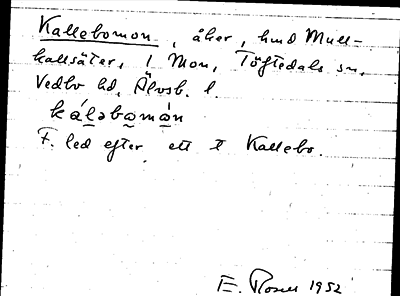 Kallebomon, åker, hmd Mull-
kallsäter, 1 Mon, Töftedals sn,
Vedbo hd, Älvsb. l.
kál̲əbo̲mán
F. led efter ett t Kallebo.
E. Rosell 1952